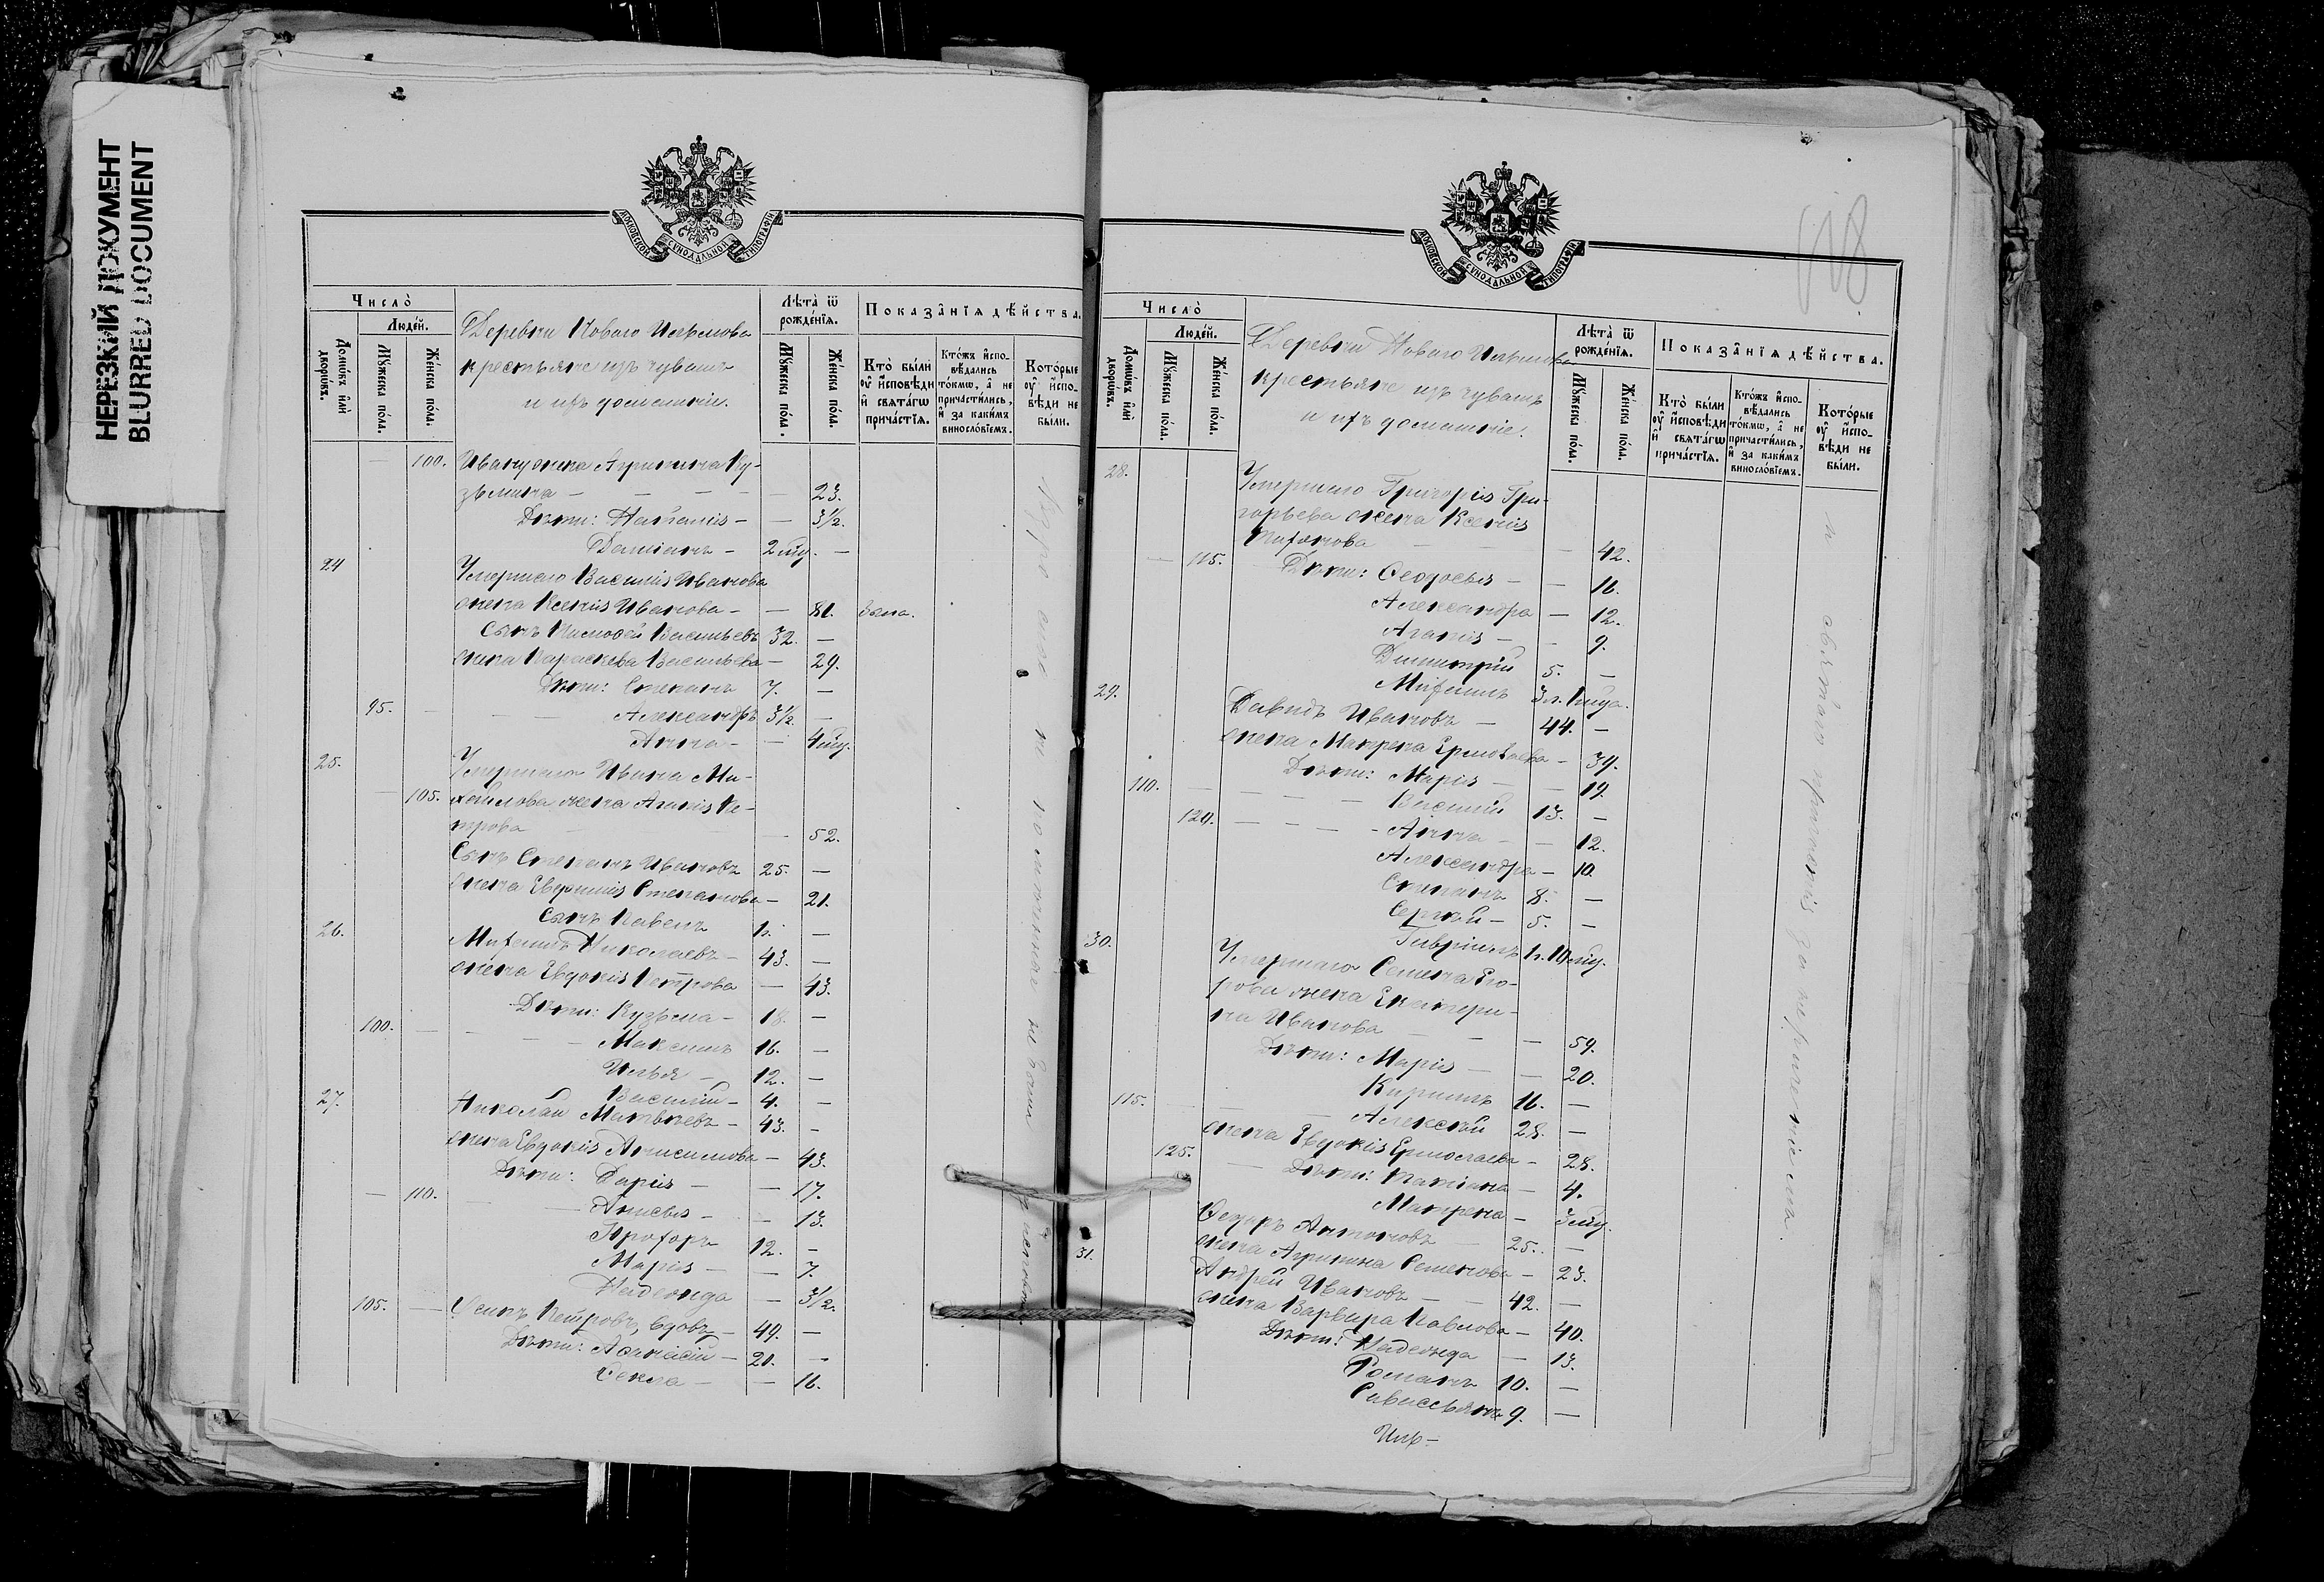 НЕРЕЗКИЙ ДОКУМЕНТ
BLURRED DOCUMENT
МОСКОВСКОЙ СѴНОДАЛЬНОЙ ТИПОГРАФІИ
Число̀
Домѡ́въ и҆лѝ дворѡ́въ.
Люде́й.
Мꙋ́жеска по́ла.
Же́нска по́ла.
Деревни Новаго Ильмова
крестьяне изъ чувашъ
и ихъ домашніе.
Лѣта̀ ѿ рожде́нїѧ.
Мꙋ́жеска по́ла.
Же́нска по́ла.
Показа̂нїѧ дѣ́йства.
Кто̀ бы́ли ᲂу҆ и҆́сповѣди и҆ свѧта́гѡ прича́стїѧ.
Кто́жъ и҆спо- вѣ́дались то́кмѡ, а҆ не причасти́лись, и҆ за каки́мъ винослові́емъ.
Кото́рые ᲂу҆ и҆́спо- вѣди не бы́ли.
— 100. Ивана жена Агрипина Ку-
зьмина — — — — — 23.
Дѣти: Наталія — — 3½.
Даміанъ — 2 мц. —
24 Умершаго Василія Иванова
жена Ксенія Иванова — — 81. Была.
Сынъ Тимофей Васильевъ 32. —
жена Параскева Васильева — 29.
Дѣти: Степанъ 7. —
95. — Александръ 3½. —
Анна — — 4 мц.
25. Умершаго Ивана Ми-
— 105. хайлова жена Агапія Пе-
трова — — 52.
Сынъ Степанъ Ивановъ 25. —
жена Евфимія Степанова — 21.
Сынъ Павелъ 1. —
26. Михаилъ Николаевъ — 43. —
жена Евдокія Петрова — 43.
Дѣти: Кузьма — 18. —
100. — — — Максимъ 16. —
Илья — 12. —
Василій — 4. —
27. Николай Матвѣевъ — 43. —
жена Евдокія Анисимова — 43.
Дѣти: Дарія — — 17.
— 110. — Анисья — — 13.
Прохоръ 12. —
Марія — — 7.
Надежда — 3½.
105. — Осипъ Петровъ, вдовъ — 49. —
Дѣти: Афанасій — 21. —
Ѳекла — — 16.
МОСКОВСКОЙ СѴНОДАЛЬНОЙ ТИПОГРАФІИ
Число̀
Домѡ́въ и҆лѝ дворѡ́въ.
Люде́й.
Мꙋ́жеска по́ла.
Же́нска по́ла.
Деревни Новаго Ильмова
крестьяне изъ чувашъ
и ихъ домашніе.
Лѣта̀ ѿ рожде́нїѧ.
Мꙋ́жеска по́ла.
Же́нска по́ла.
Показа̂нїѧ дѣ́йства.
Кто̀ бы́ли ᲂу҆ и҆́сповѣди и҆ свѧта́гѡ прича́стїѧ.
Кто́жъ и҆спо- вѣ́дались то́кмѡ, а҆ не причасти́лись, и҆ за каки́мъ винослові́емъ.
Кото́рые ᲂу҆ и҆́спо- вѣди не бы́ли.
28. Умершаго Григорія Гри-
горьева жена Ксенія
— 42.
— 115. Дѣти: Ѳеодосья — — 16.
Александра — 12.
Агапія — — 9.
Димитрій 5. —
Михаилъ 3 л. 1 мца.
29. Давидъ Ивановъ — 44. —
жена Макрена Ермолаева — 39.
Дѣти: Марія — — 19.
110. — — — — Василій 13. —
120. — — — — Анна — — 12.
Александра — 10.
Степанъ 8. —
Сергѣй — 5. —
Гавріилъ 1 г. 10 мц.
30. Умершаго Семена Его-
рова жена Екатери-
на Иванова — — — 59.
Дѣти: Марія — — 20.
Кириллъ 16. —
115. — Алексѣй 28. —
жена Евдокія Ермолаева — 28.
125. — Дѣти: Татіана — 4.
Макрена — 3 мц.
Ѳедоръ Антоновъ — 25. —
31. жена Агрипина Семенова — 23.
Андрей Ивановъ — — 42. —
жена Варвара Павлова — 40.
Дѣти: Надежда — 13.
Романъ 10. —
Савассьянъ 9. —
Иль-